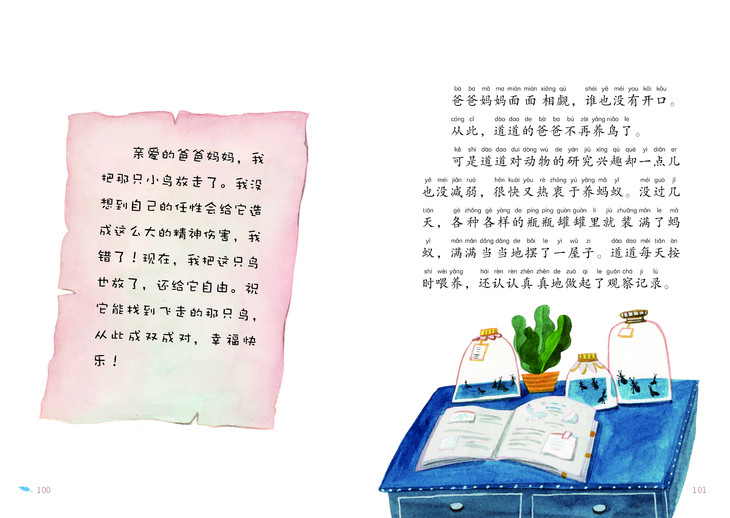 亲爱的爸爸妈妈，我
把那只小鸟放走了。我没
想到自己的任性会给它造
成这么大的精神伤害，我
错了！现在，我把这只鸟
也放了，还给它自由。祝
它能找到飞走的那只鸟，
从此成双成对，幸福快
乐！
100
bà ba mā ma miàn miàn xiāng qù shéi yě méi yǒu kāi kǒu
爸爸妈妈面面相觑，谁也没有开口。
cóng cǐ dào dao de bà ba bú zài yǎng niǎo le
从此，道道的爸爸不再养鸟了。
kě shì dào dao duì dòng wù de yán jiū xìng qù què yì diǎn er
可是道道对动物的研究兴趣却一点儿
yě méi jiǎn ruò hěn kuài yòu rè zhōng yú yǎng mǎ yǐ méi guò jǐ
也没减弱，很快又热衷于养蚂蚁。没过几
tiān gè zhǒng gè yàng de píng píng guàn guàn lǐ jiù zhuāng mǎn le mǎ
天，各种各样的瓶瓶罐罐里就装满了蚂
yǐ mǎn mǎn dāng dāng de bǎi le yì wū zi dào dao měi tiān àn
蚁，满满当当地摆了一屋子。道道每天按
shí wèi yǎng hái rèn rèn zhēn zhēn de zuò qǐ le guān chá jì lù
时喂养，还认认真真地做起了观察记录。
101